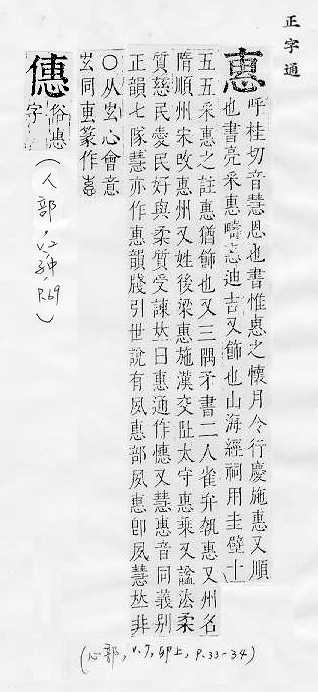 正字通
惠 呼桂切音慧恩也書惟惠之懷月令行慶施惠又順
也書亮采惠疇惎迪吉又飾也山海經祠用圭璧十
五五采惠之註惠猶飾也又三隅矛書二人雀弁執惠又州名
隋順州宋改惠州又姓後梁惠施漢交趾太守惠乘又諡法柔
質慈民愛民好與柔質受諫𠀤曰惠通作憓又慧惠音同義別
正韻七隊慧亦作惠韻牋引世說有夙惠部夙惠卽夙慧𠀤非
〇从叀心會意
叀同叀篆作
僡 俗惠
字
(人部,V.2,子中,P.69)
(心部,V.7,卯上,P.33-34)